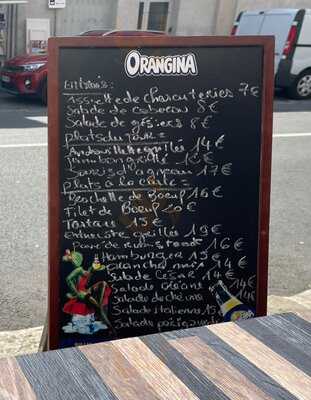 ORANGINA
Entrées =
Assiette de charcuteries 7€
Salade de cabecou 8€
Salade de gésiers 8€
plats du jour =
Andouillette grillée 14€
Jambon grillé 1 €
Souris d'agneau 17€
plats à la carte =
Brochette de Boeuf 16€
Filet de Boeuf 20€
Tartare 15€
Entrecôte grillée 19€
Pavé de rumsteack 16€
Hamburger 15€
14€
Salade César 14€
Salade 14€
Salade de chèvre 14€
Salade italienne 15€
Salade périgourdine